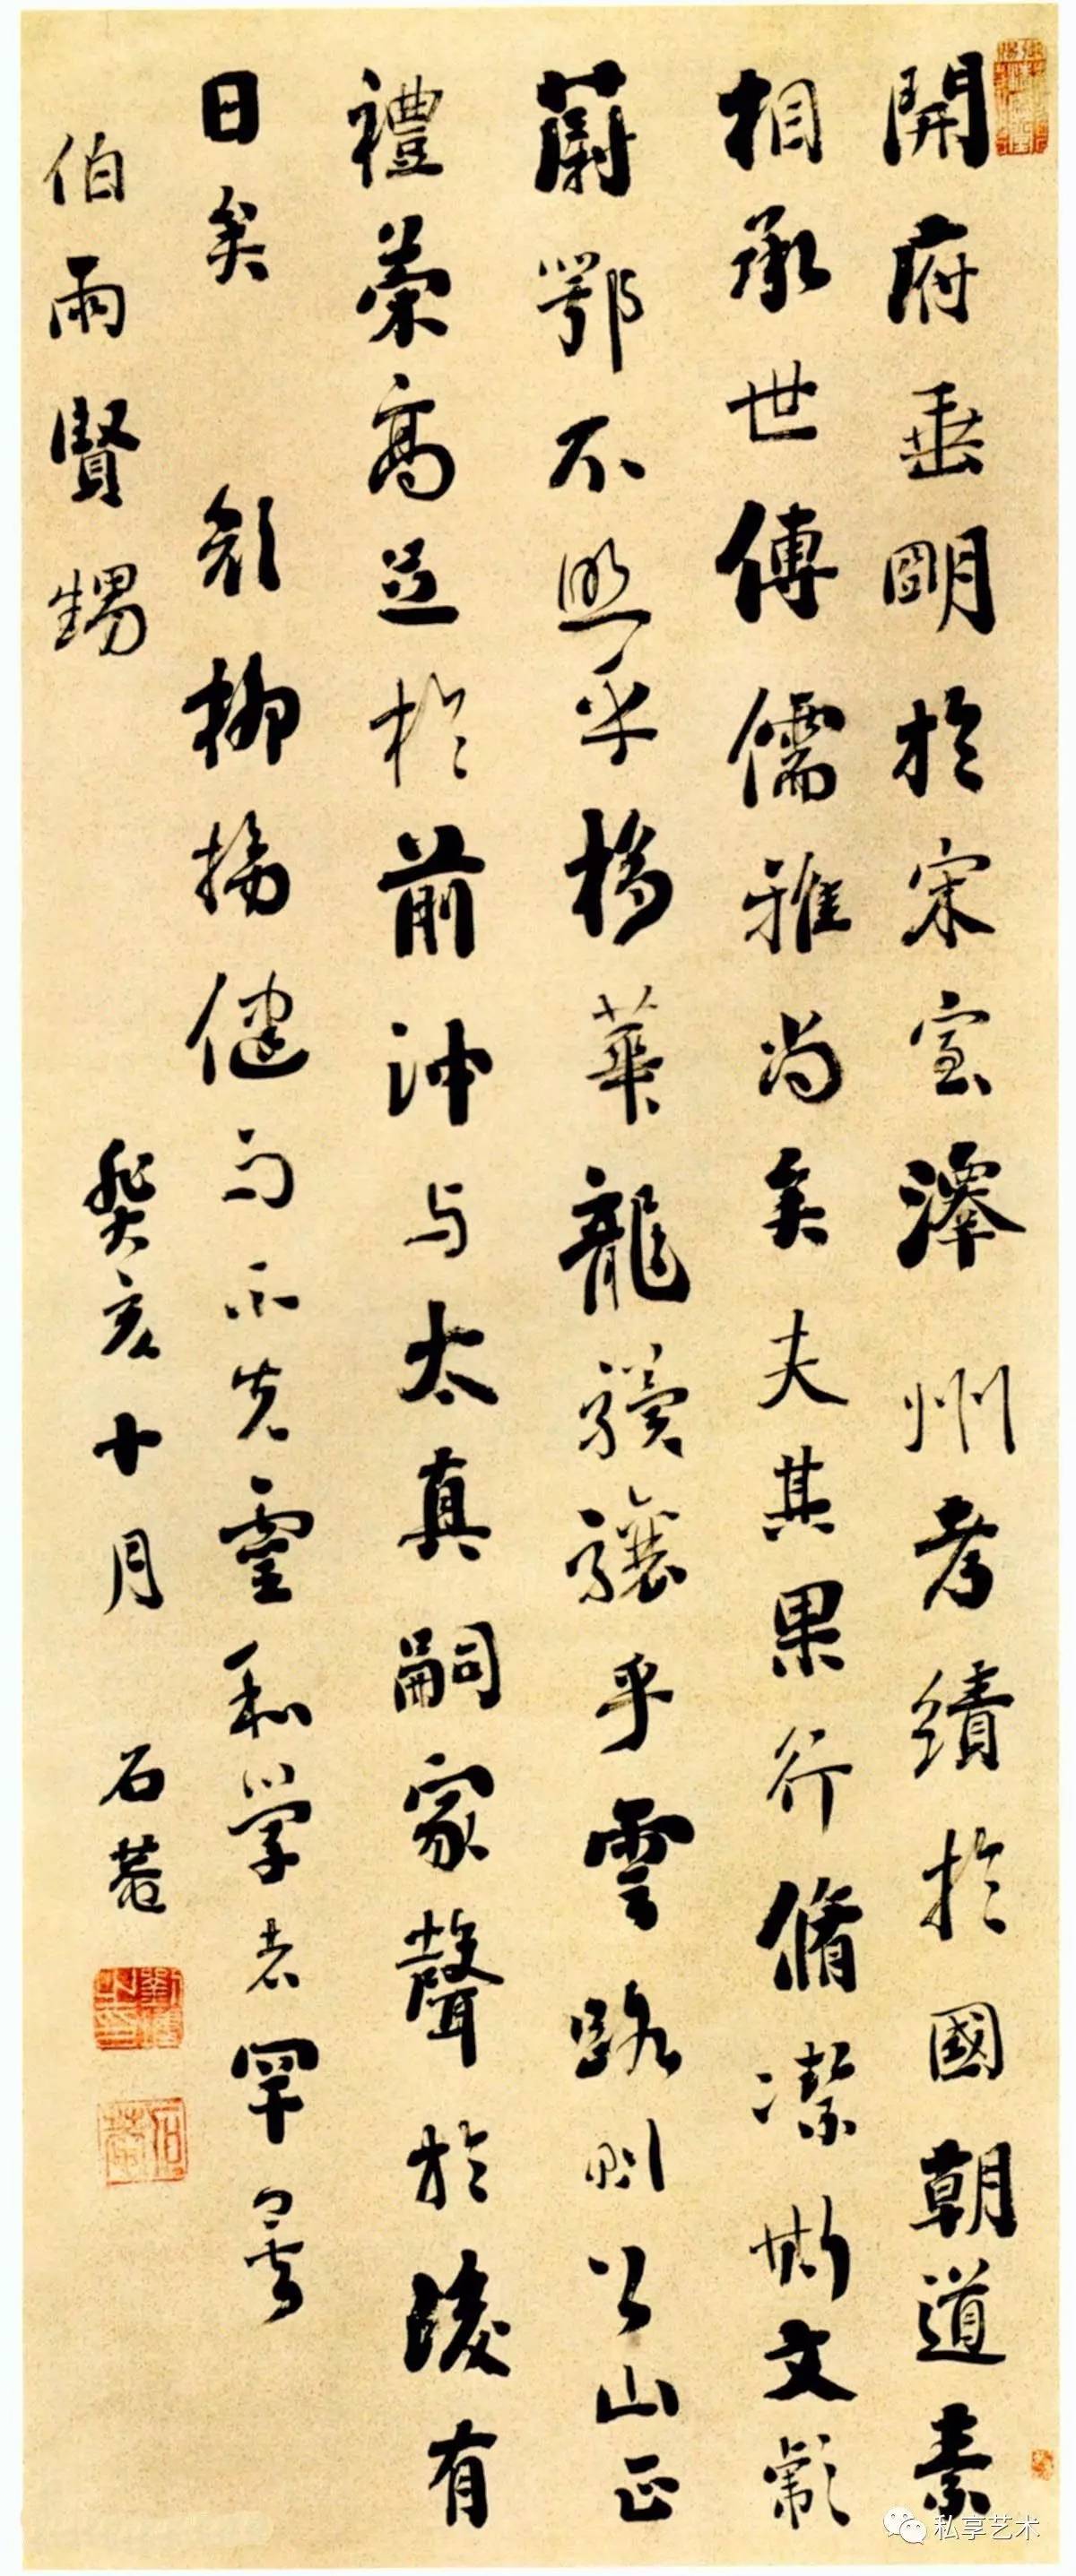 開府垂明於宋室澤州考績於國朝道素
相承世傳儒雅尚矣夫其果行脩潔斯文彪
蔚鄂不照乎棣華龍驥驤乎雲路則公山正
禮策高足於前沖与太真嗣家聲於後有
日矣 柳楊健句而先靈和學者罕云
伯雨賢甥
癸亥十月 石菴
私享艺术